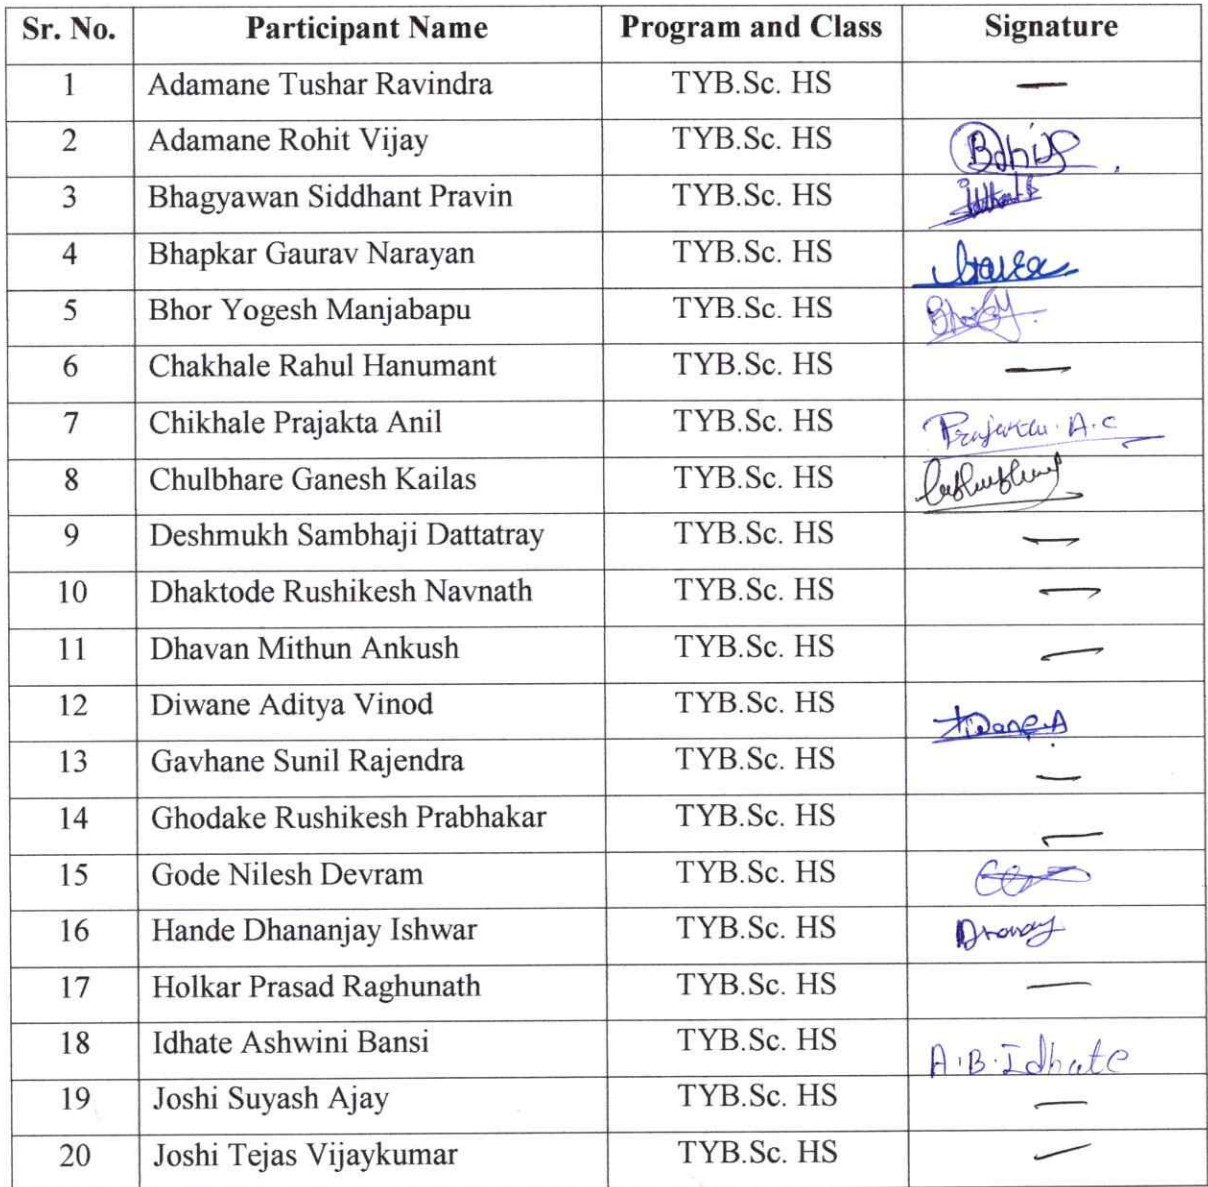 Sr. No. Participant Name Program and Class Signature
1 Adamane Tushar Ravindra TYB.Sc. HS —
2 Adamane Rohit Vijay TYB.Sc. HS
3 Bhagyawan Siddhant Pravin TYB.Sc. HS
4 Bhapkar Gaurav Narayan TYB.Sc. HS
5 Bhor Yogesh Manjabapu TYB.Sc. HS
6 Chakhale Rahul Hanumant TYB.Sc. HS —
7 Chikhale Prajakta Anil TYB.Sc. HS Prajakta. A. C
8 Chulbhare Ganesh Kailas TYB.Sc. HS
9 Deshmukh Sambhaji Dattatray TYB.Sc. HS —
10 Dhaktode Rushikesh Navnath TYB.Sc. HS —
11 Dhavan Mithun Ankush TYB.Sc. HS —
12 Diwane Aditya Vinod TYB.Sc. HS
13 Gavhane Sunil Rajendra TYB.Sc. HS —
14 Ghodake Rushikesh Prabhakar TYB.Sc. HS —
15 Gode Nilesh Devram TYB.Sc. HS
16 Hande Dhananjay Ishwar TYB.Sc. HS
17 Holkar Prasad Raghunath TYB.Sc. HS —
18 Idhate Ashwini Bansi TYB.Sc. HS A.B.Idhate
19 Joshi Suyash Ajay TYB.Sc. HS —
20 Joshi Tejas Vijaykumar TYB.Sc. HS —